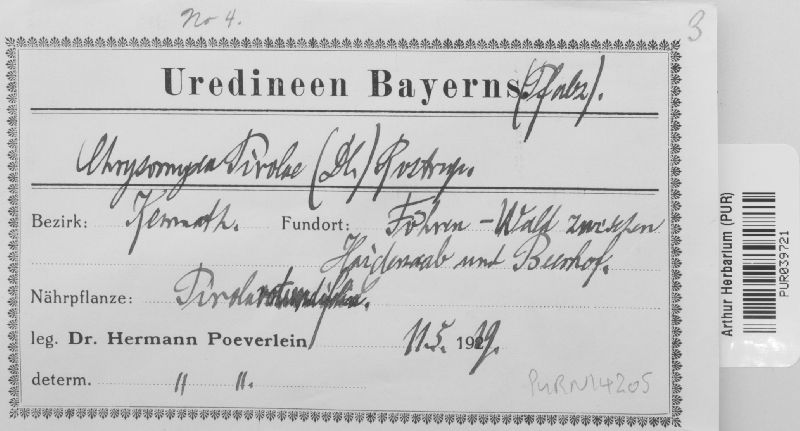 No 4.
3
Uredineen Bayerns (Pfalz).
Chrysomyxa Pirolae (DC.) Rostrup.
Bezirk: Kemnath. Fundort: Föhren-Wald zwischen
Haidenaab und Beerhof.
Nährpflanze: Pirola rotundifolia.
leg. Dr. Hermann Poeverlein 11.5. 1919.
determ. " ".
PURN14205
Arthur Herbarium (PUR)
PUR039721